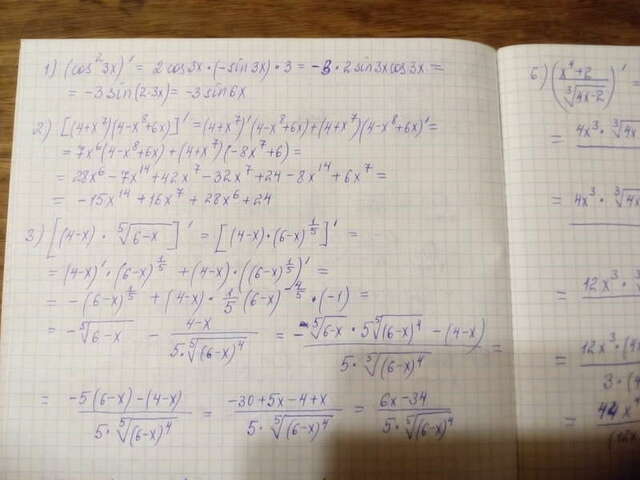 1) (cos² 3x)' = 2 cos 3x · (-sin 3x) · 3 = -3 · 2 sin 3x cos 3x =
= -3 sin (2·3x) = -3 sin 6x
2) [(4+x⁷)(4-x⁸+6x)]' = (4+x⁷)'(4-x⁸+6x)+(4+x⁷)(4-x⁸+6x)' =
= 7x⁶(4-x⁸+6x)+(4+x⁷)(-8x⁷+6) =
= 28x⁶-7x¹⁴+42x⁷-32x⁷+24-8x¹⁴+6x⁷ =
= -15x¹⁴+16x⁷+28x⁶+24
3) [(4-x) · ⁵√(6-x)]' = [(4-x)·(6-x)^(1/5)]' =
= (4-x)' · (6-x)^(1/5) + (4-x) · ((6-x)^(1/5))' =
= -(6-x)^(1/5) + (4-x) · 1/5 (6-x)^(-4/5) · (-1) =
= -⁵√(6-x) - (4-x)/(5·⁵√((6-x)⁴)) = (-⁵√(6-x) · 5⁵√((6-x)⁴) - (4-x))/(5·⁵√((6-x)⁴)) =
= (-5(6-x)-(4-x))/(5·⁵√((6-x)⁴)) = (-30+5x-4+x)/(5·⁵√((6-x)⁴)) = (6x-34)/(5·⁵√((6-x)⁴))
6) ((x⁴+2)/(³√(4x-2)))' =
= 4x³ · ³√(4x
= 4x³ · ³√(4x
= 12x³ · ³√
= 12x³ · (4x
3 · (4